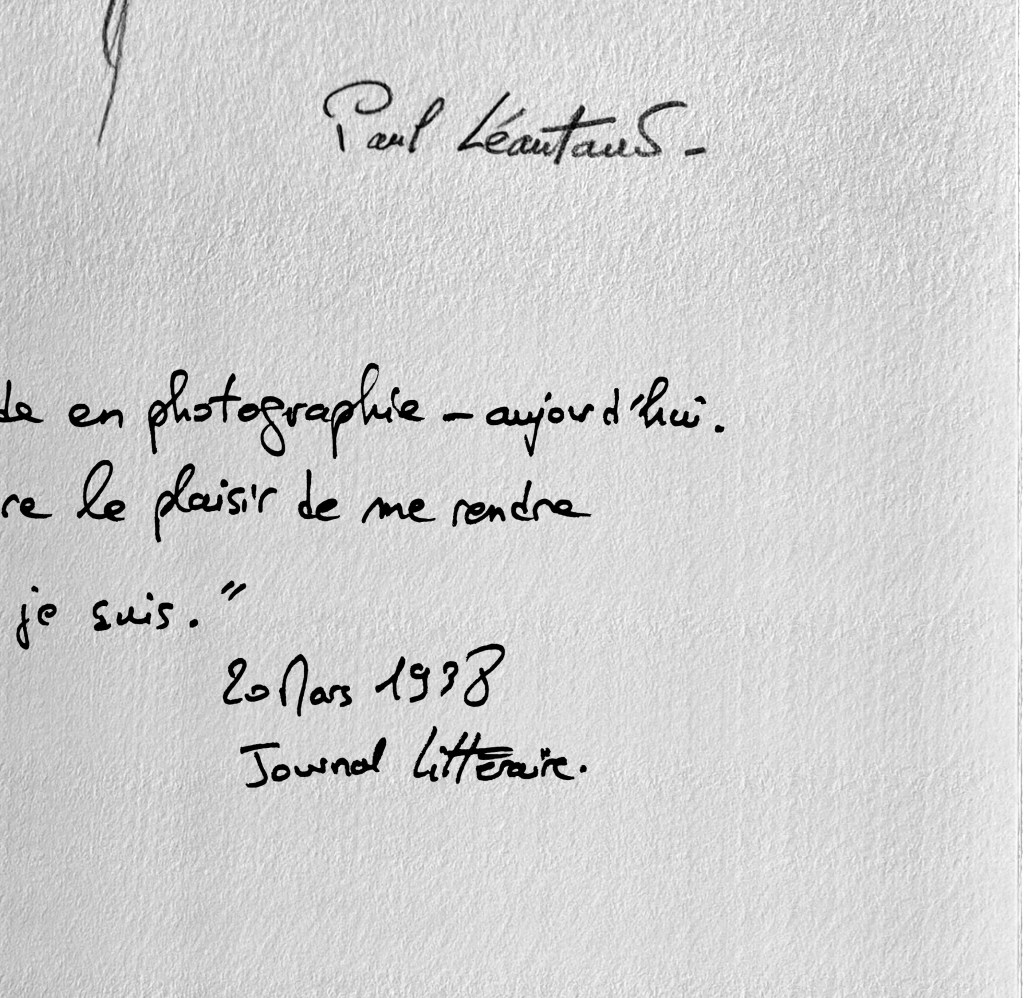 Paul Léautaud -
de en photographie - aujourd'hui.
re le plaisir de me rendre
je suis."
20 Mars 1938
Journal Littéraire.